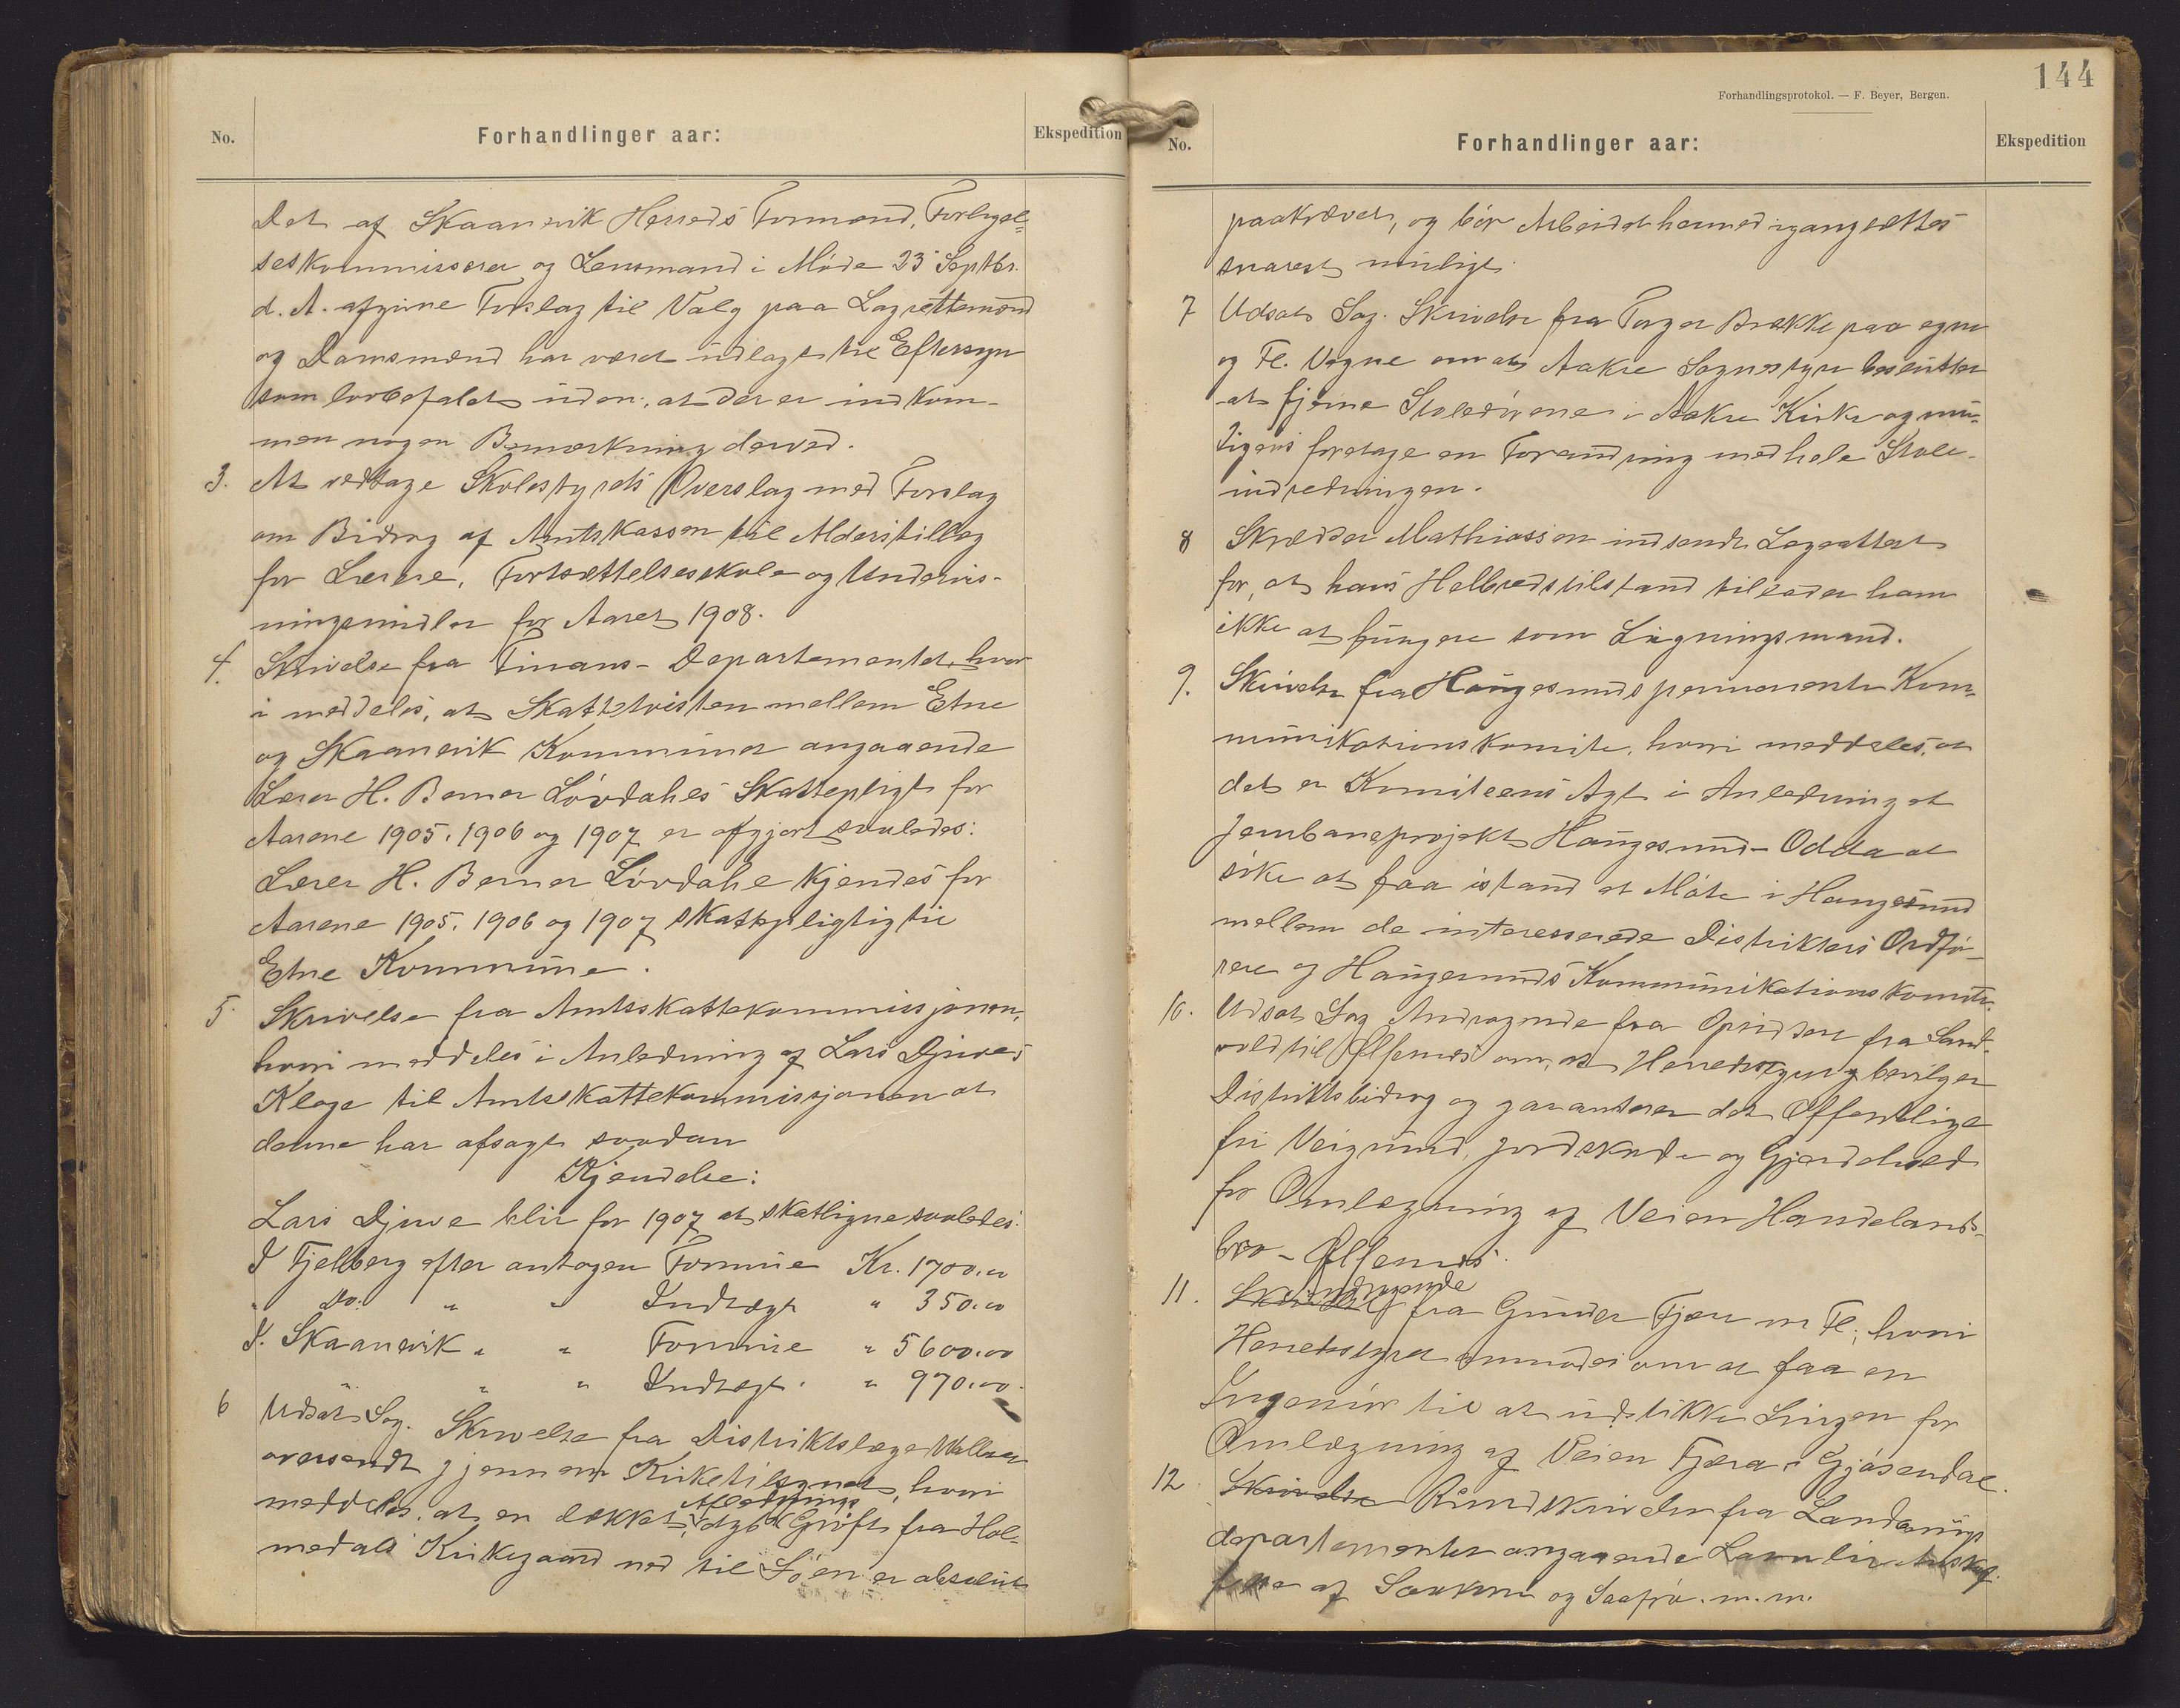 No.
Forhandlinger aar:
Ekspedition
Det af Skaanevik Herreds Formænd, Forligel-
seskommissærer og Lensmand i Møde 23 Septbr.
d. A. afgivne Forslag til Valg paa Lagrettemænd
og Domsmænd har været udlagt til Eftersyn
som lovbefalet uden, at der er indkom-
men nogen Bemærkning derved.
3. At vedtage Skolestyrets Overslag med Forslag
om Bidrag af Amtskassen til Alderstillæg
for Lærere, Fortsættelsesskole og Undervis-
ningsmidler for Aaret 1908.
4. Skrivelse fra Finans-Departementet, hvor
i meddeles, at Skattetvisten mellem Etne
og Skaanevik Kommuner angaaende
Lærer H. Berner Løvdahls Skattepligt for
Aarene 1905, 1906 og 1907 er afgjort saaledes:
Lærer H. Berner Løvdahl kjendes for
Aarene 1905, 1906 og 1907 skattepligtig til
Etne Kommune.
5. Skrivelse fra Amtsskattekommissjonen,
hvori meddeles i Anledning af Lars Djuves
Klage til Amtsskattekommissjonen at
denne har afsagt saadan
Kjendelse:
Lars Djuve blir for 1907 at skatligne saaledes:
I Fjelberg efter antagen Formue Kr. 1700.00
" Do. " " Indtægt " 350.00
I. Skaanevik " " Formue " 5600.00
" " " Indtægt " 970.00.
6 Udsat Sag. Skrivelse fra Distriktslæge
oversendt gjennem Kirketilsynet, hvori
Afledning
meddeles, at en lukket Grøft fra Hol-
medals Kirkegaard ned til Søen er absolut
144
Forhandlingsprotokol. — F. Beyer, Bergen.
No.
Forhandlinger aar:
Ekspedition
paakrævet, og bør Arbeidet hermed igangsættes
snarest muligt.
7 Udsat Sag. Skrivelse fra Torger Brække paa egne
og Fl. Vegne om at Aakre Sognestyre beslutter
at fjerne Stoledørene i Aakre Kirke og mu-
ligens foretage en Forandring med hele Stole-
indredningen.
8 Skrædder Mathiassen indsendt Lægeattest
for, at hans Helbredstilstand tillader ham
ikke at fungere som Ligningsmand.
9. Skrivelse fra Haugesunds permanente Kom-
munikationskomite, hvori meddeles, at
det er Komiteens Agt i Anledning at
Jernbaneprojekt Haugesund-Odda at
søke at faa istand et Møte i Haugesund
mellem de interesserede Distrikters Ordfø-
rere og Haugesunds Kommunikationskomite.
10. Udsat Sag Andragende fra Opsiddere fra Sand-
vold til Ølfernes om, at Herredsstyret bevilger
Distriktsbidrag og garanterer det Offentlige
fri Veigrund, Jordskade og Gjærdehold
for Omlægning af Veien Handelands-
bro - Ølfernes.
11. Skrivelse Andragende fra Gunder Fjære m Fl., hvori
Herredsstyret anmodes om at faa en
Ingeniør til at udstikke Linjen for
Omlægning af Veien Fjæra - Gjøsendal.
12 Skrivelse Rundskrivelse fra Landbrugs
departementet angaaende Anskaf-
felse af Sækorn og Saafrø. m. m.